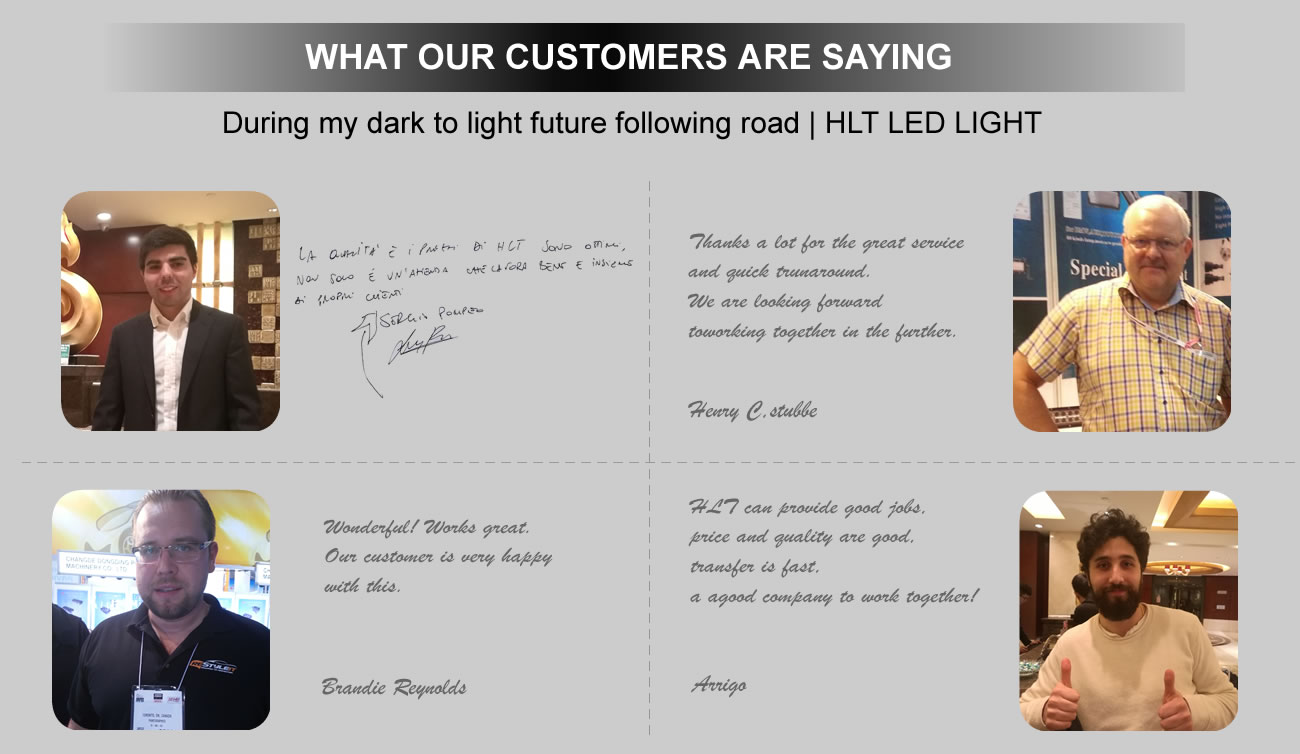 WHAT OUR CUSTOMERS ARE SAYING
During my dark to light future following road | HLT LED LIGHT
LA QUALITÀ E I PREZZI DI HLT SONO OTTIMI,
NON SOLO É UN'AZIENDA CHE LAVORA BENE E INSIEME
AI PROPRI CLIENTI
SERGIO POMPEO
Thanks a lot for the great service
and quick trunaround.
We are looking forward
toworking together in the further.
Henry C.stubbe
Special
Wonderful! Works great.
Our customer is very happy
with this.
Brandie Reynolds
CHANGDE DONGDING
MACHINERY CO., LTD
STYLE
HLT can provide good jobs,
price and quality are good,
transfer is fast,
a agood company to work together!
Arrigo